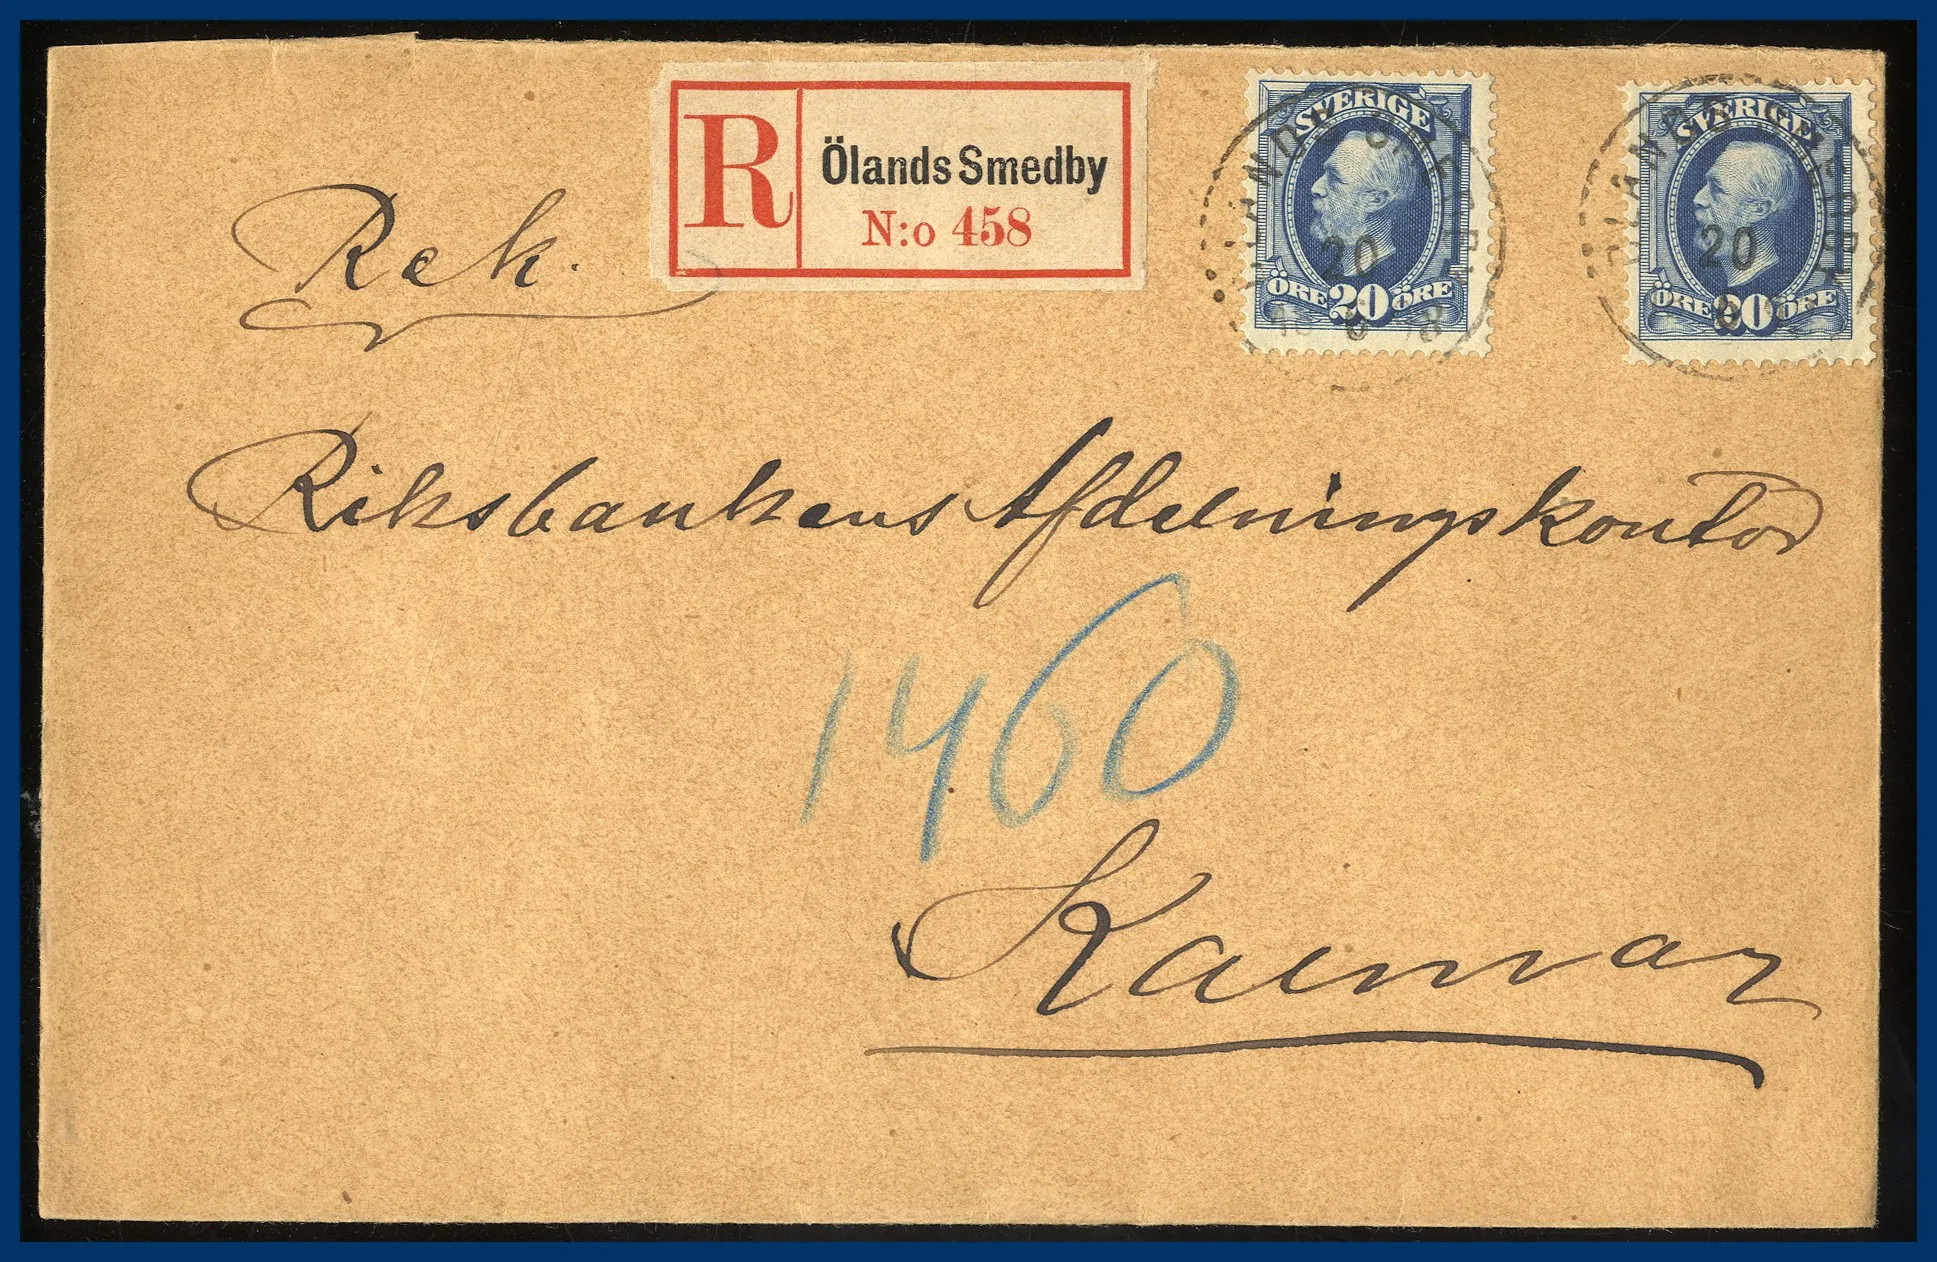 R
Ölands Smedby
N:o 458
SVERIGE
ÖRE 20 ÖRE
SVERIGE
ÖRE 20 ÖRE
20
20
Rek.
Riksbankens Afdelningskontor
1460
Kalmar